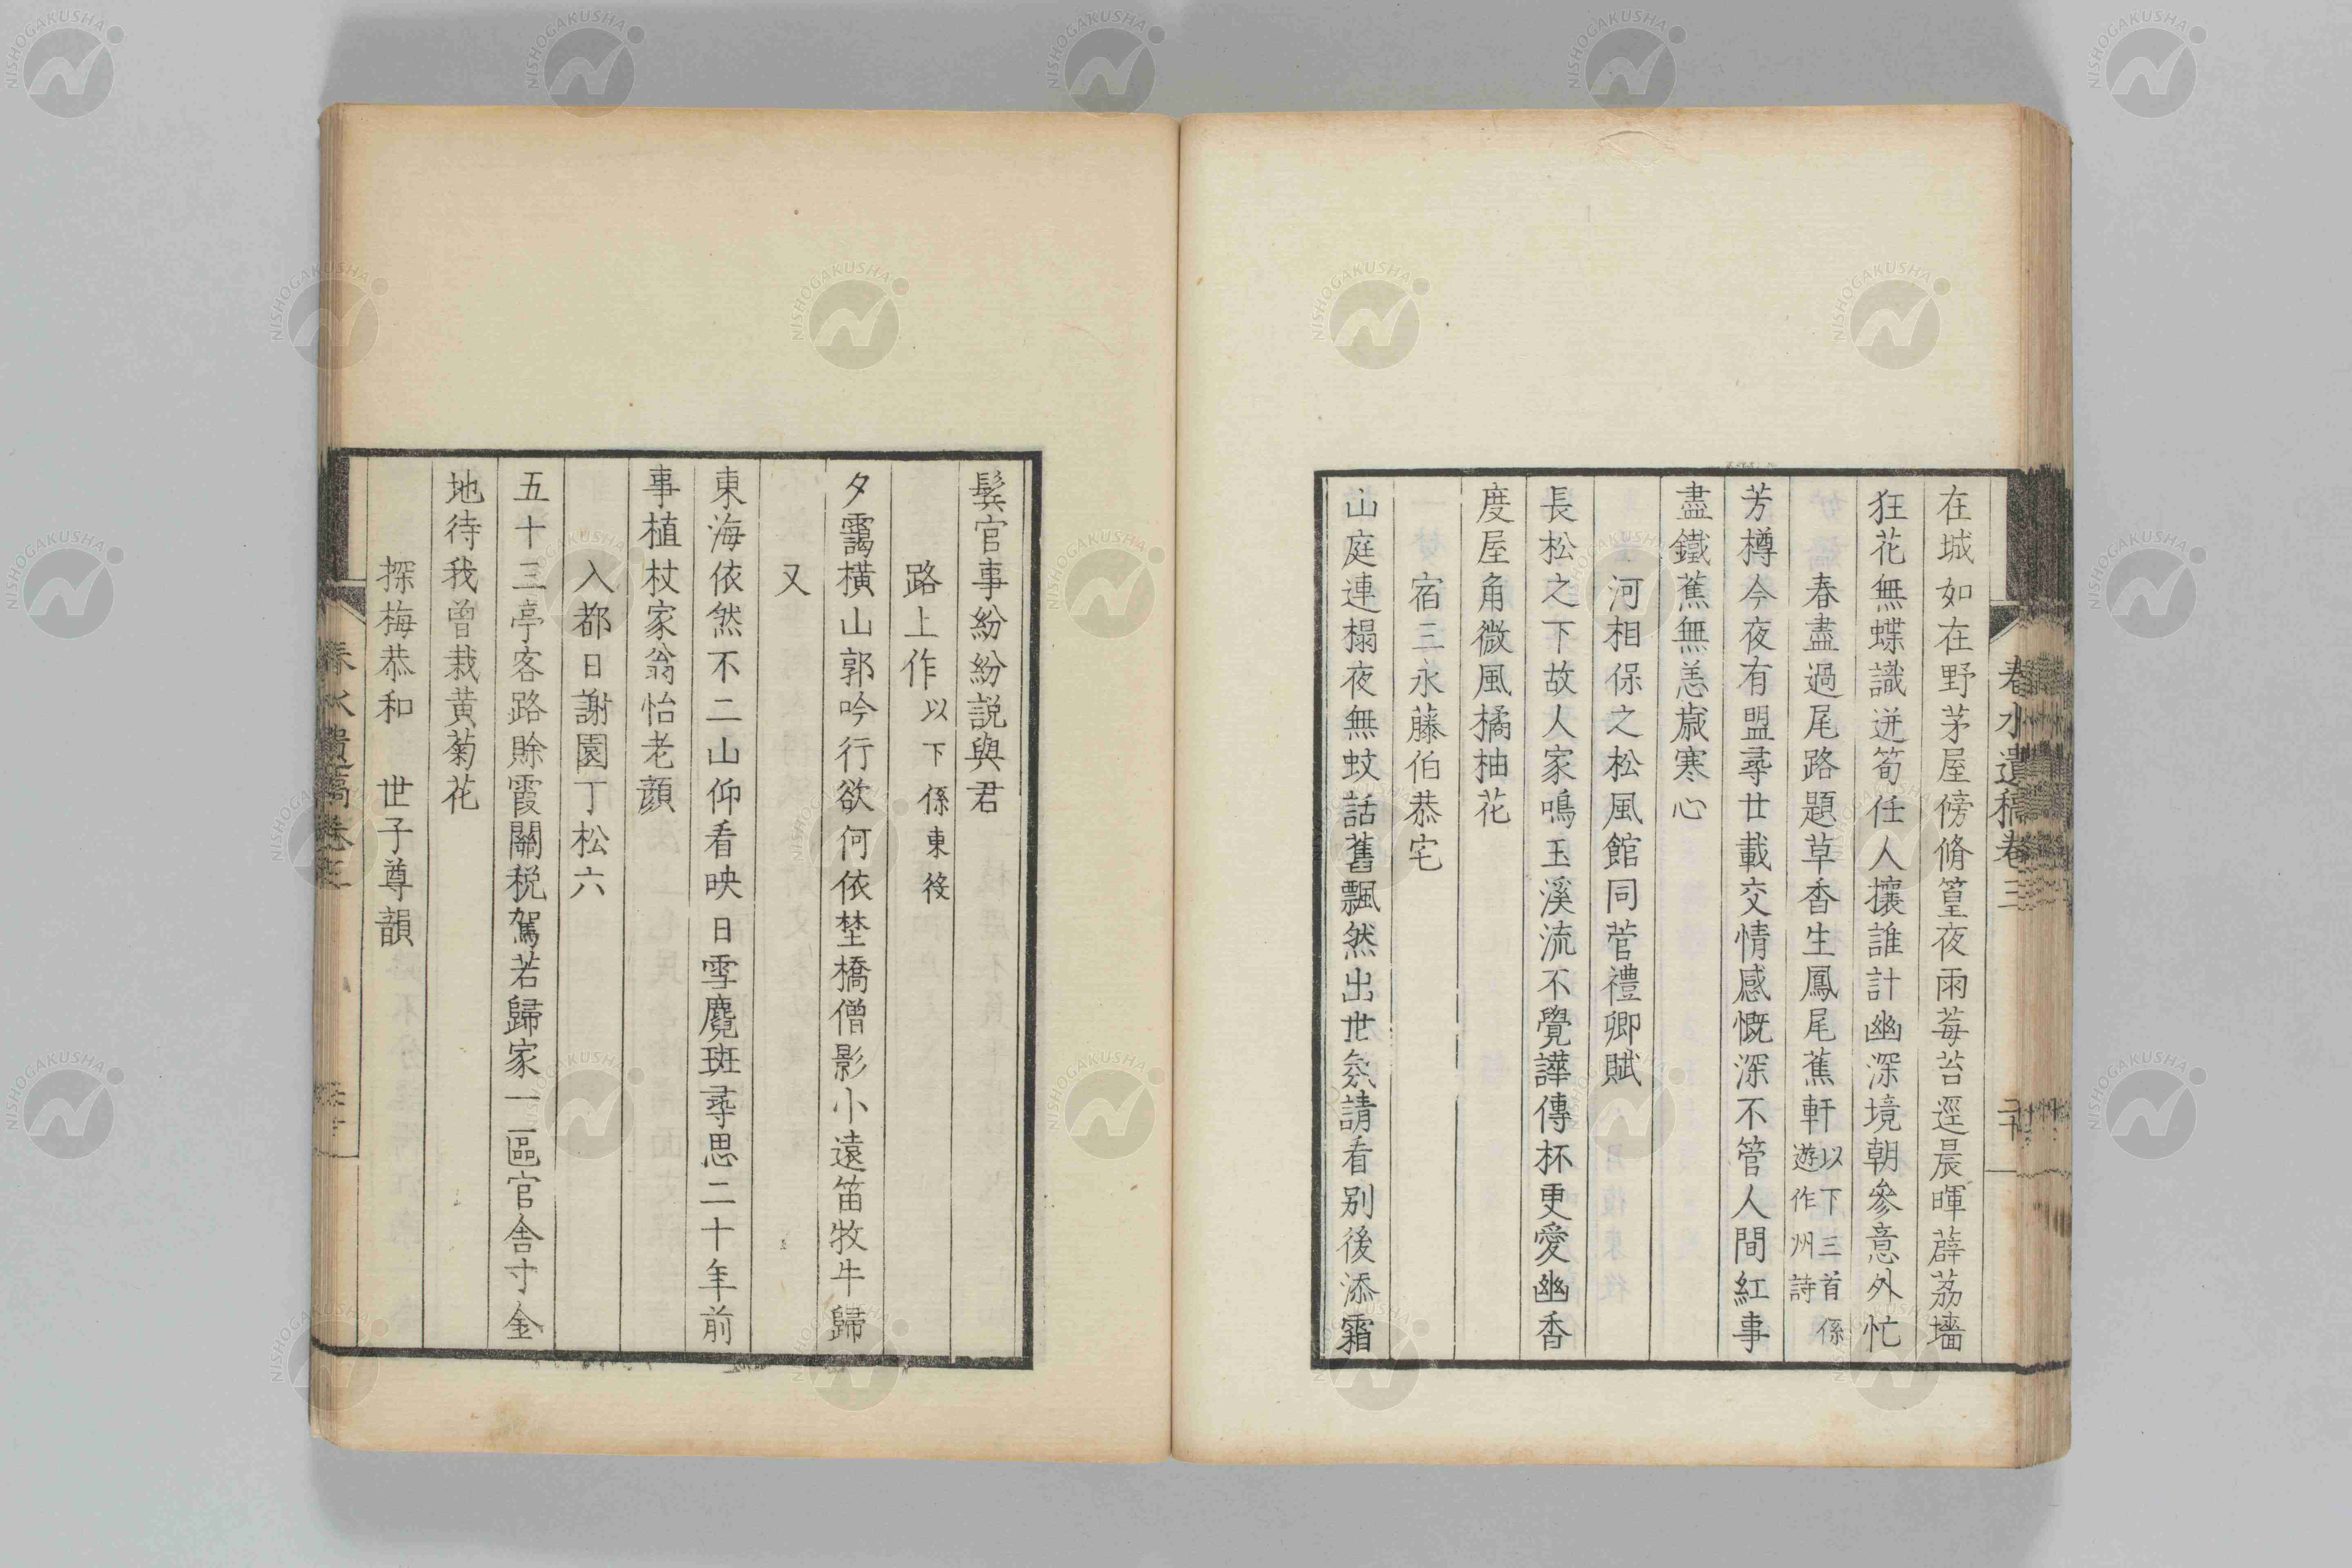 春水遺稿卷三
二十
在城如在野茅屋傍脩篁夜雨莓苔逕晨暉薜荔墻
狂花無蝶識迸筍任人攘誰計幽深境朝參意外忙
春盡過尾路題草香生鳳尾蕉軒以下三首係
遊作州詩
芳樽今夜有盟尋廿載交情感慨深不管人間紅事
盡鐵蕉無恙歳寒心
河相保之松風館同菅禮卿賦
長松之下故人家鳴玉溪流不覺譁傳杯更愛幽香
度屋角微風橘柚花
宿三永藤伯恭宅
山庭連榻夜無蚊話舊飄然出世氛請看別後添霜
鬂官事紛紛説與君
路上作以下係東役
夕靄橫山郭吟行欲何依埜橋僧影小遠笛牧牛歸
又
東海依然不二山仰看映日雪麑斑尋思二十年前
事植杖家翁怡老顔
入都日謝園丁松六
五十三亭客路賒霞關税駕若歸家一區官舎寸金
地待我曾栽黄菊花
探梅恭和 世子尊韻
春水遺稿卷三
NISHOGAKUSHA